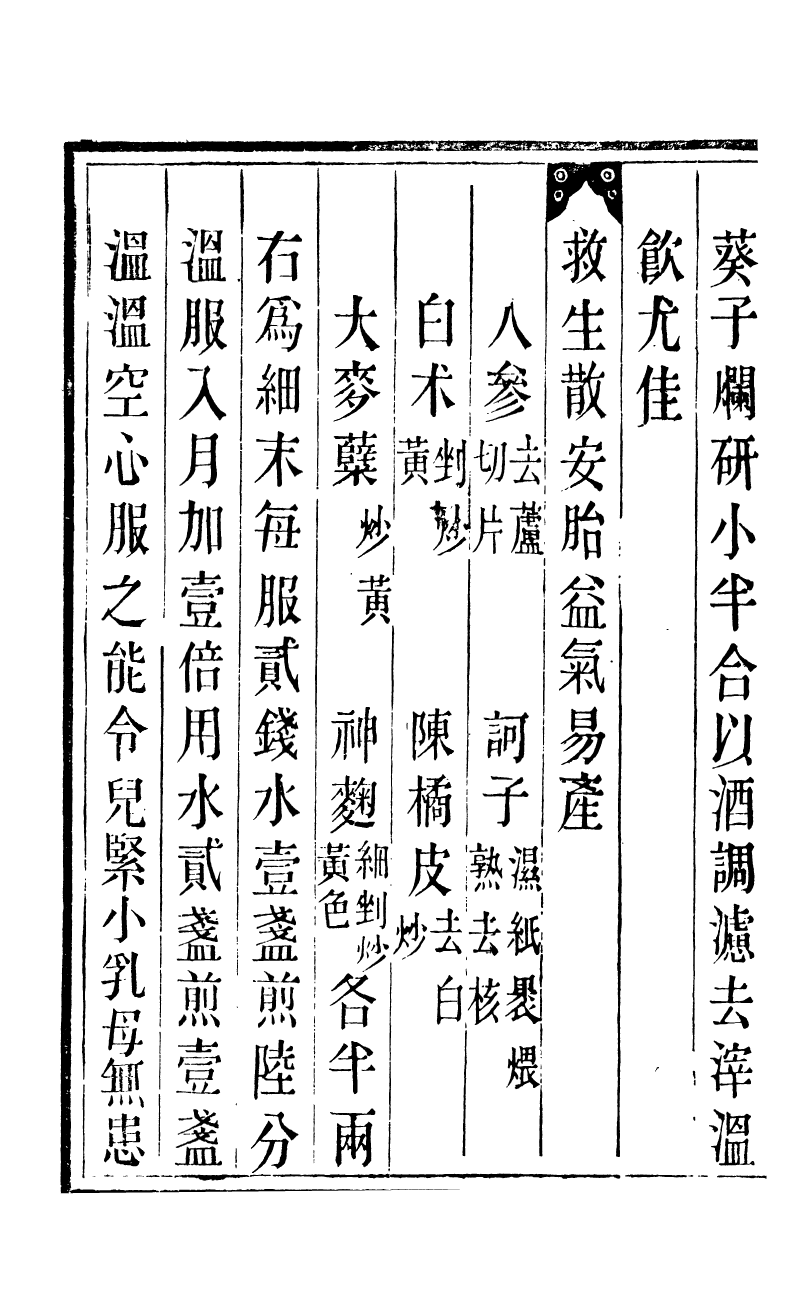 葵子爛研小半合以酒調濾去滓溫
飮尤佳
救生散安胎益氣易產
人參去蘆切片 訶子濕紙褁煨熟去核
白朮剉炒黃 陳橘皮去白炒
大麥蘖炒黃 神麴細剉炒黃色各半兩
右爲細末每服貳錢水壹盞煎陸分
溫服入月加壹倍用水貳盞煎壹盞
溫溫空心服之能令兒緊小乳母無患